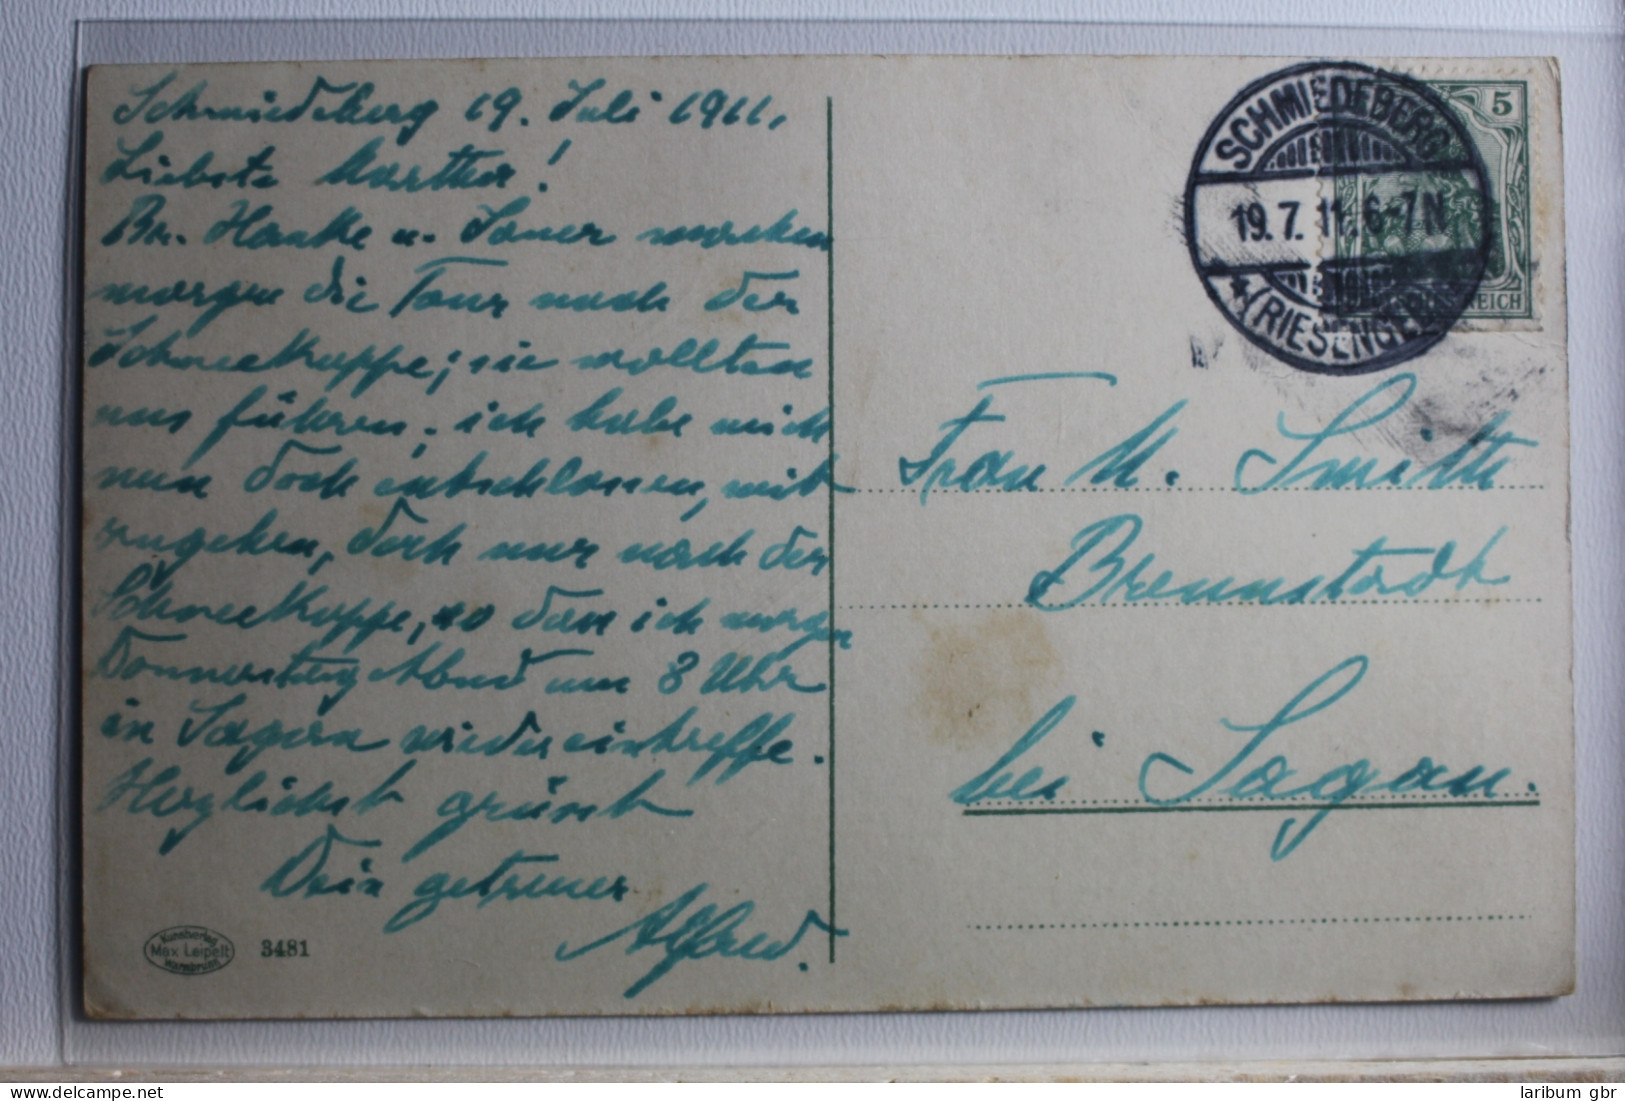 Schmiedeberg 19. Juli 1911.
Liebste Martha!
Br. Hanke u. Saner machen
morgen die Tour nach der
Schneekoppe; sie wollten
uns führen; ich habe mich
nun doch entschlossen, mit
zugehen, doch nur nach der
Schneekoppe, so dass ich morgen
Donnerstag Abend um 8 Uhr
in Sagan wieder eintreffe.
Herzlichst grüsst
Dein getreuer
Alfred.
Kunstverlag
Max Leipelt
Warmbrunn
3481
SCHMIEDEBERG
19.7.11. 6-7N
* (RIESENGEB
5
REICH
Frau M. Smith
Brennstadt
bei Sagan.
laribum gbr